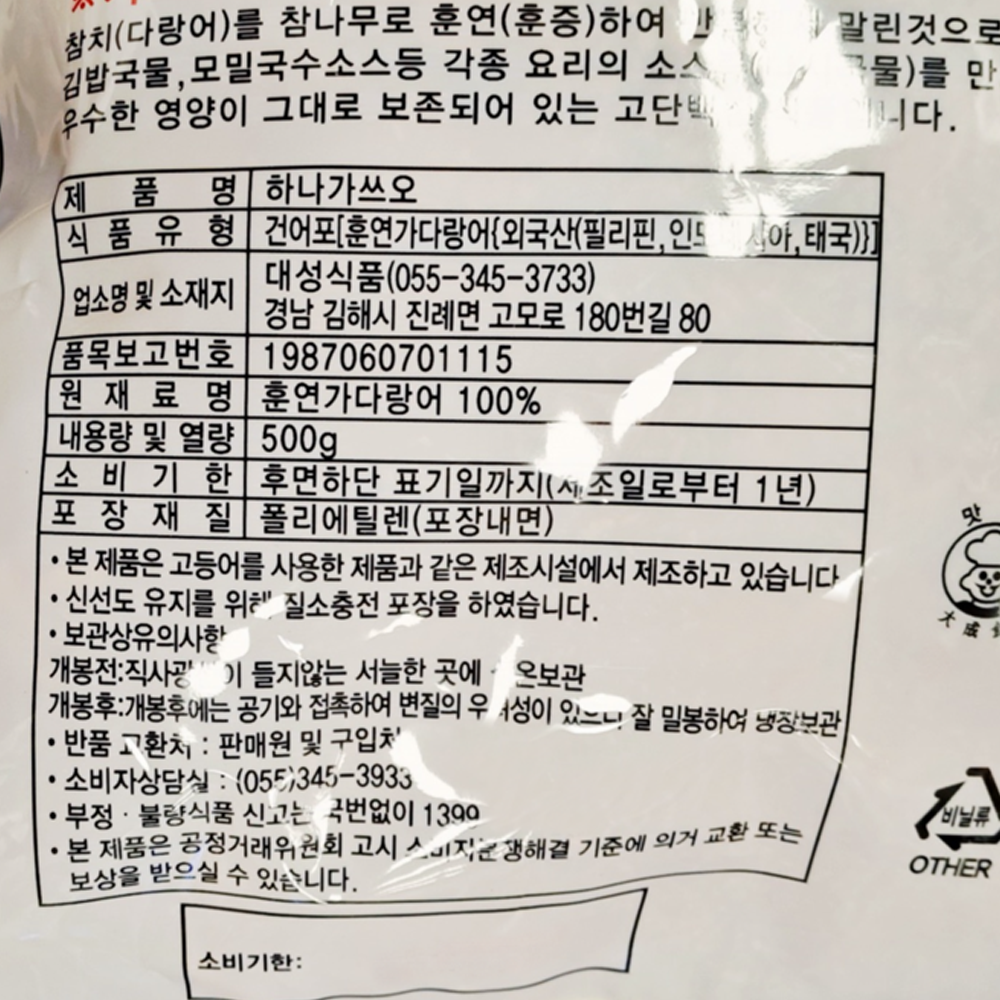 참치(다랑어)를 참나무로 훈연(훈증)하여 말린것으로
김밥국물,모밀국수소스등 각종 요리의 소스 물)를 만
우수한 영양이 그대로 보존되어 있는 고단백 니다.
제 품 명 하나가쓰오
식 품 유 형 건어포[훈연가다랑어{외국산(필리핀, 태국)}]
업소명 및 소재지 대성식품(055-345-3733)
경남 김해시 진례면 고모로 180번길 80
품목보고번호 1987060701115
원 재 료 명 훈연가다랑어 100%
내용량 및 열량 500g
소 비 기 한 후면하단 표기일까지(제조일로부터 1년)
포 장 재 질 폴리에틸렌(포장내면)
• 본 제품은 고등어를 사용한 제품과 같은 제조시설에서 제조하고 있습니다
• 신선도 유지를 위해 질소충전 포장을 하였습니다.
• 보관상유의사항
개봉전:직사광 이 들지않는 서늘한 곳에 온보관
개봉후:개봉후에는 공기와 접촉하여 변질의 우려성이 있으니 잘 밀봉하여 냉장보관
• 반품 교환처 : 판매원 및 구입처
• 소비자상담실 : (055)345-3933
• 부정 · 불량식품 신고는 국번없이 1399
• 본 제품은 공정거래위원회 고시 소비자분쟁해결 기준에 의거 교환 또는
보상을 받으실 수 있습니다.
소비기한:
맛
大成
비닐류
OTHER